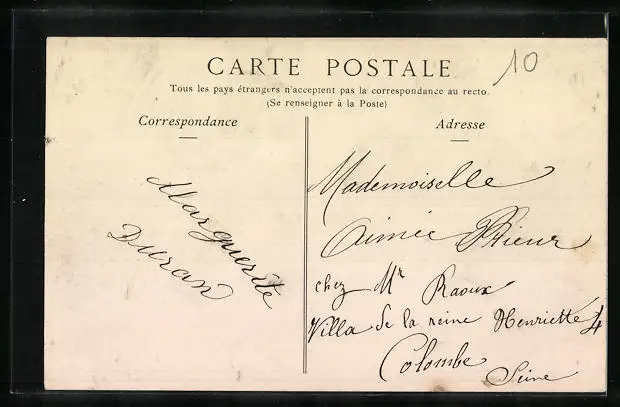 10
CARTE POSTALE
Tous les pays étrangers n'acceptent pas la correspondance au recto.
(Se renseigner à la Poste)
Correspondance
Marguerite
Duran
Adresse
Mademoiselle
Aimée Prieur
chez Mr Raoux
Villa de la reine Henriette 4
Colombe
Seine